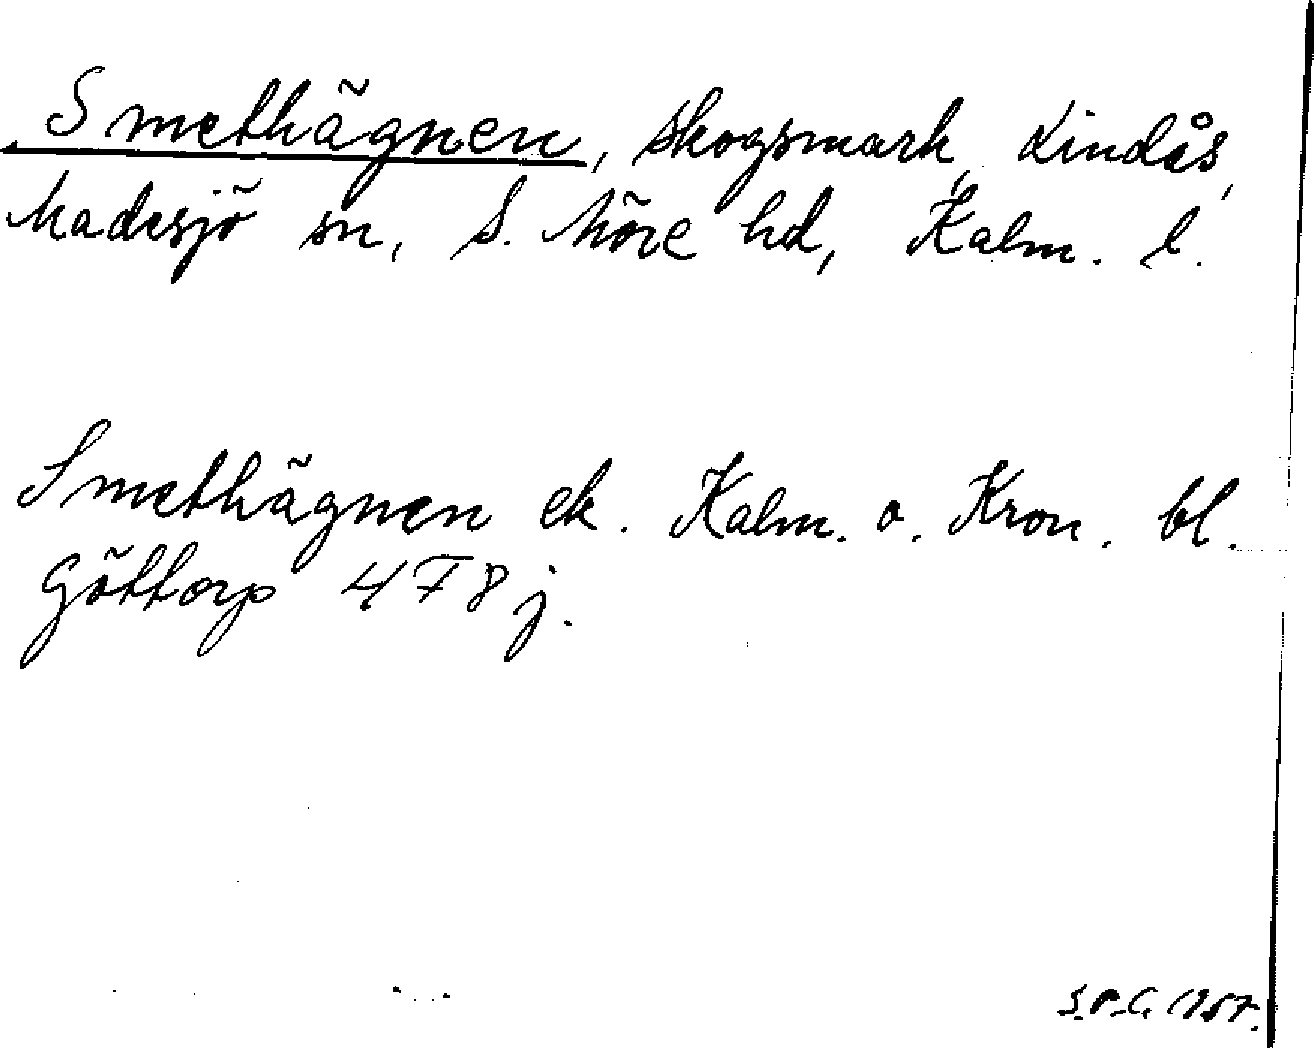 Smethägnen, skogsmark, Lindås,
Madesjö sn, S. Möre hd, Kalm. l.
Smethägnen ek. Kalm. o. Kron. bl.
Göttorp 4 F 8 j.
S.P.G. 1957.